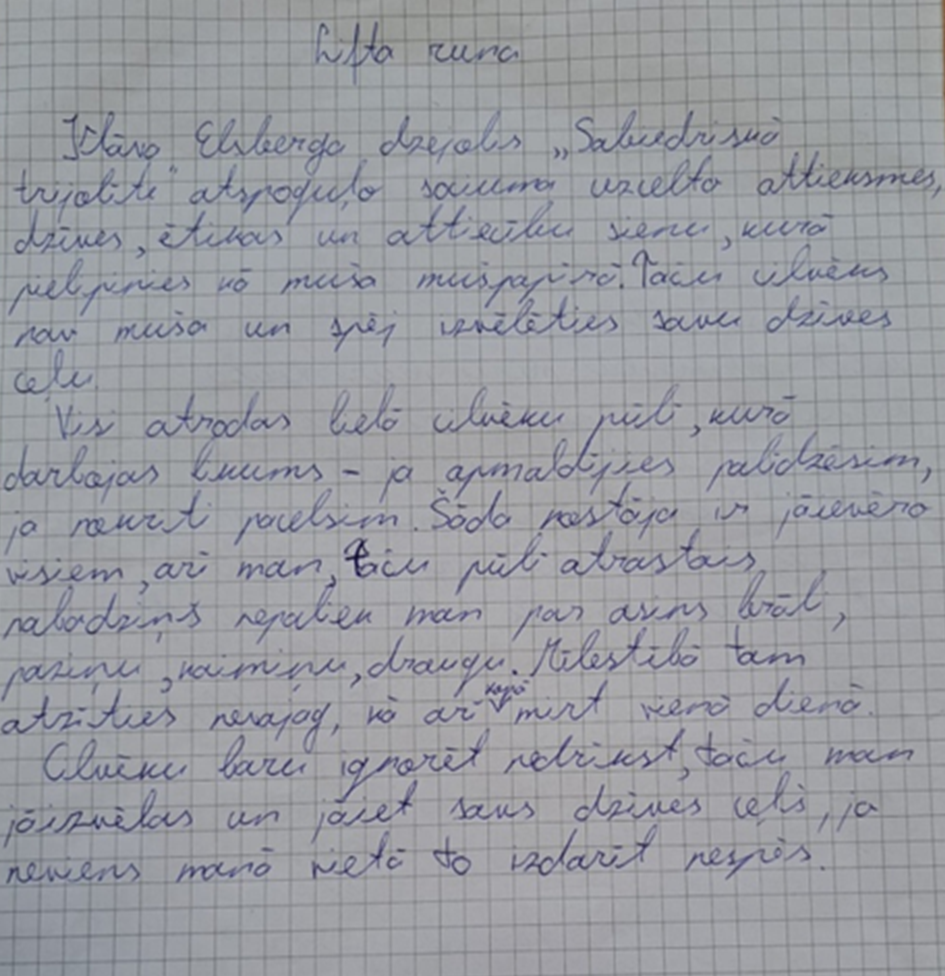 Lifta runa
Klāva Elsberga dzejolis „Sabiedriskā
trijolīte" atspoguļo saiuma uzcelto attieksmes,
dzīves, ētikas un attiecību sienu, kurā
pielipinies kā muša mušpapīrā. Taču cilvēks
nav muša un spēj izvēlēties savu dzīves
ceļu.
Visi atrodas lielā cilvēku pūlī, kurā
darbojas likums - ja apmaldījies palīdzēsim,
ja nokritī pacelsim. Šāda nostāja ir jāievēro
visiem, arī man, taču pūlī atrastais
nabadziņš nepaliek man par asins brāli,
paziņu, kaimiņu, draugu. Mīlestībā tam
atzīties nevajag, kā arī kopā mirt vienā dienā.
Cilvēku baru ignorēt nedrīkst, taču man
jāizvēlas un jāiet savs dzīves ceļš, jo
neviens manā vietā to izdarīt nespēs.